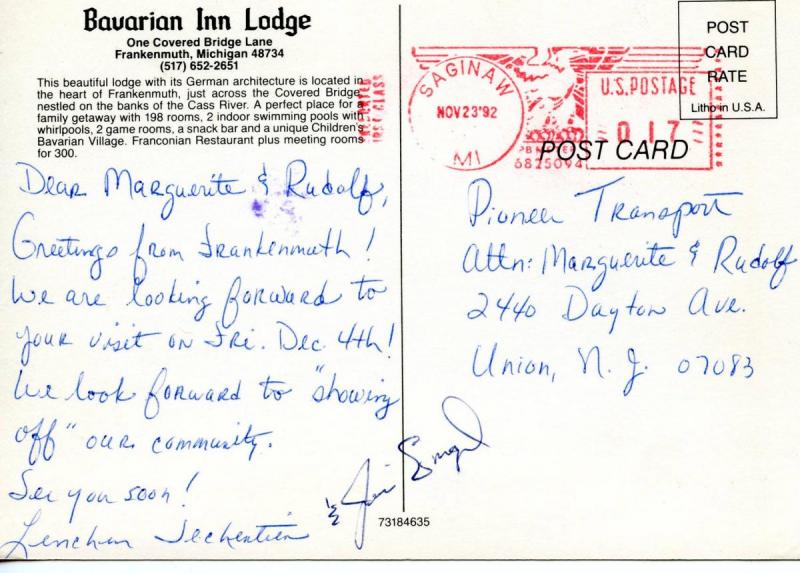 Bavarian Inn Lodge
One Covered Bridge Lane
Frankenmuth, Michigan 48734
(517) 652-2651
This beautiful lodge with its German architecture is located in
the heart of Frankenmuth, just across the Covered Bridge
nestled on the banks of the Cass River. A perfect place for a
family getaway with 198 rooms, 2 indoor swimming pools with
whirlpools, 2 game rooms, a snack bar and a unique Children's
Bavarian Village. Franconian Restaurant plus meeting rooms
for 300.
Dear Marguerite & Rudolf,
Greetings from Frankenmuth!
We are looking forward to
your visit on Fri. Dec. 4th!
We look forward to "showing
off" our community.
See you soon!
&
73184635
SAGINAW
NOV 23 '92
MI
U.S. POSTAGE
0 1 7
POST
CARD
RATE
Litho in U.S.A.
POST CARD
Pioneer Transport
Attn: Marguerite & Rudolf
2440 Dayton Ave.
Union, N.J. 07083